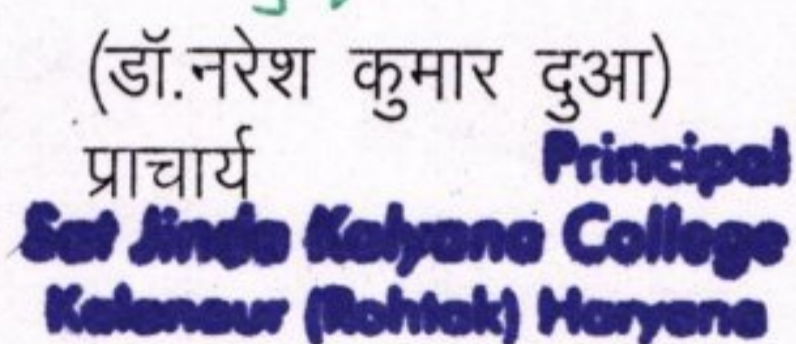 (डॉ.नरेश कुमार दुआ)
प्राचार्य Principal
Sat Jinda Kalyana College
Kalanaur (Rohtak) Haryana